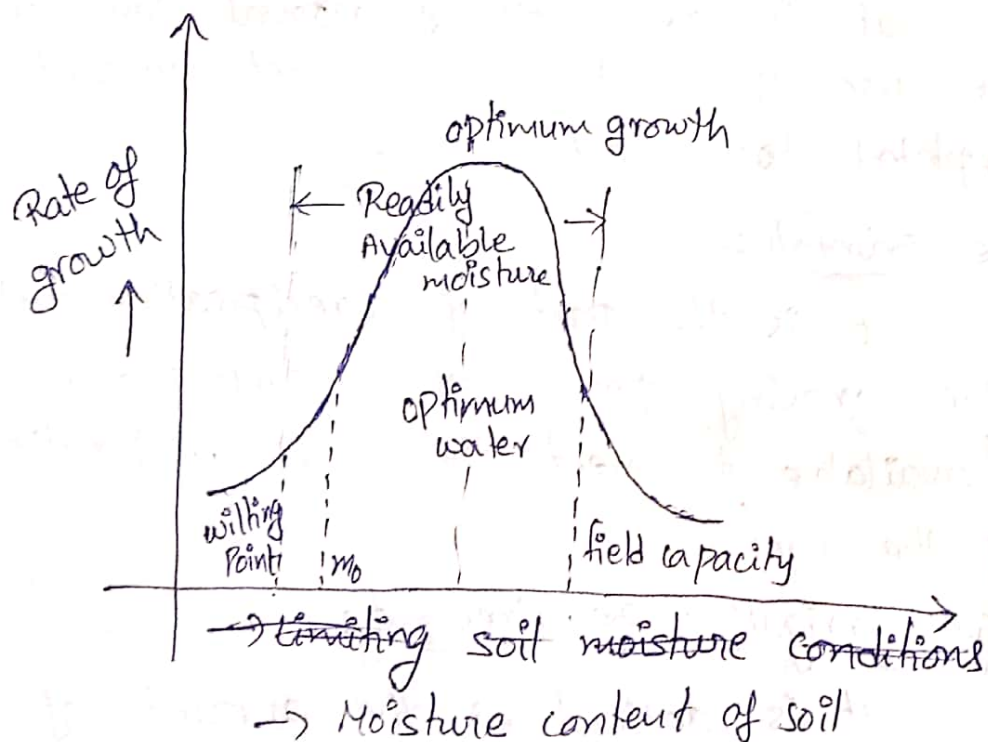 optimum growth
Rate of
growth
Readily
Available
moisture
optimum
water
wilting
Point
m₀
field capacity
→ limiting soil moisture conditions
→ Moisture content of soil